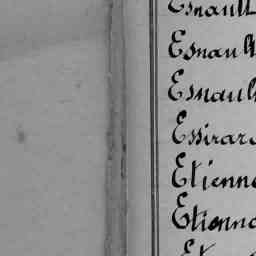 Esnault
Esnault
Esnaul
Essirar
Etienn
Etienn